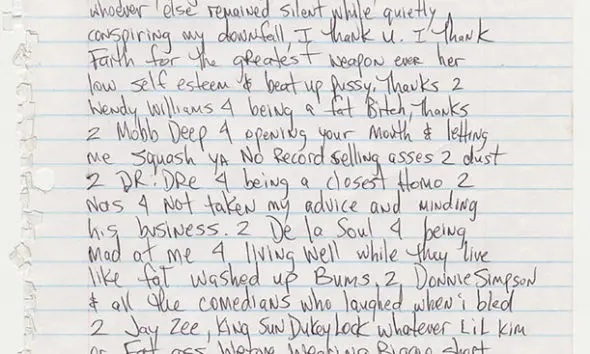 whoever else remained silent while quietly
conspiring my downfall, I thank U. I thank
Faith for the greatest weapon ever her
low self esteem & beat up pussy. Thanks 2
Wendy Williams 4 being a fat Bitch, Thanks
2 Mobb Deep 4 opening your mouth & letting
me squash ya No Record selling asses 2 dust
2 DR. DRe 4 being a closest Homo 2
Nas 4 Not taken my advice and minding
his business. 2 De la Soul 4 being
mad at me 4 living well while they live
like fat washed up Bums, 2 Donnie Simpson
& all the comedians who laughed when i bled
2 Jay Zee, King Sun Dukey Lock whatever Lil Kim
or Fat ass